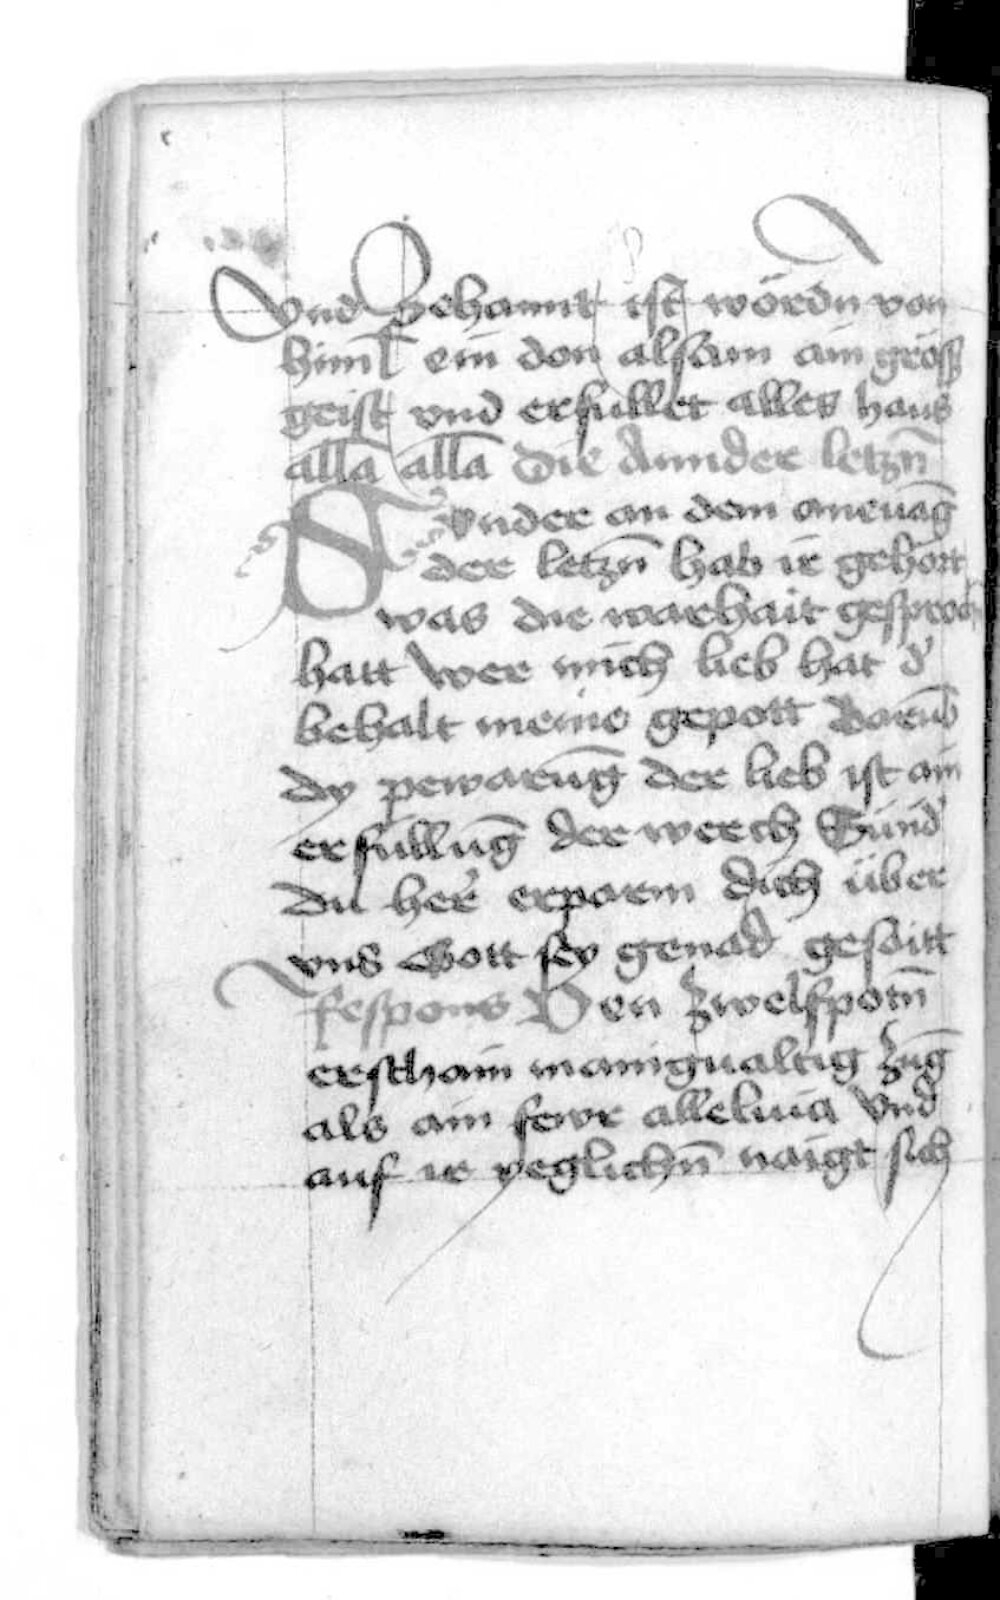 vnd Bekannt ist wordn von
himl ein don alsam ain gross
geist vnd erfullet alles haus
alla alla Die Annder letzn̄
Sunder an dem aneuāg
der letzn̄ hab ir gehort
was die warhait gesproch
hatt wer mich lieb hat d'
behalt meine gepott Darūb
dy pewarūg der lieb ist ain
erfullūg der werch Sund'
Du her' erparm dich über
vns Gott sey genad gesaitt
Respons Den zwelfpotn̄
erschain manigualtig zūg
als ain fewr alleluia Vnd
auf ir yeglichn̄ naigt sich